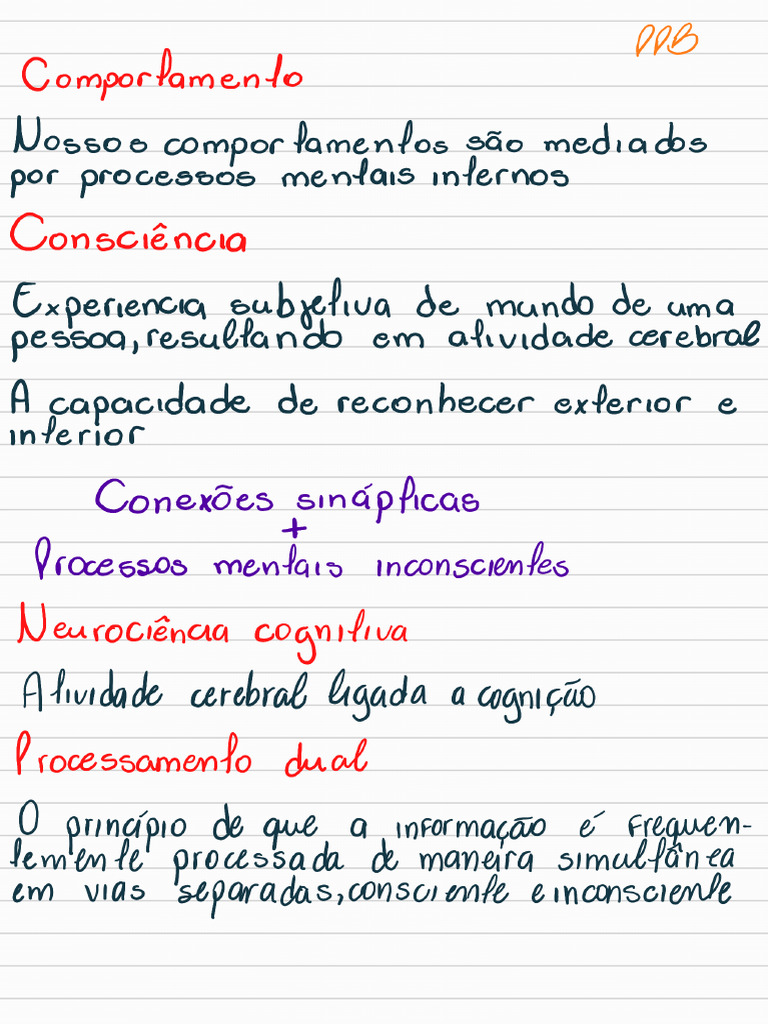 PPB
Comportamento
Nossos comportamentos são mediados
por processos mentais internos
Consciência
Experiencia subjetiva de mundo de uma
pessoa, resultando em atividade cerebral
A capacidade de reconhecer exterior e
interior
Conexões sinápticas
+
Processos mentais inconscientes
Neurociência cognitiva
Atividade cerebral ligada a cognição
Processamento dual
O princípio de que a informação é frequen-
temente processada de maneira simultânea
em vias separadas, consciente e inconsciente